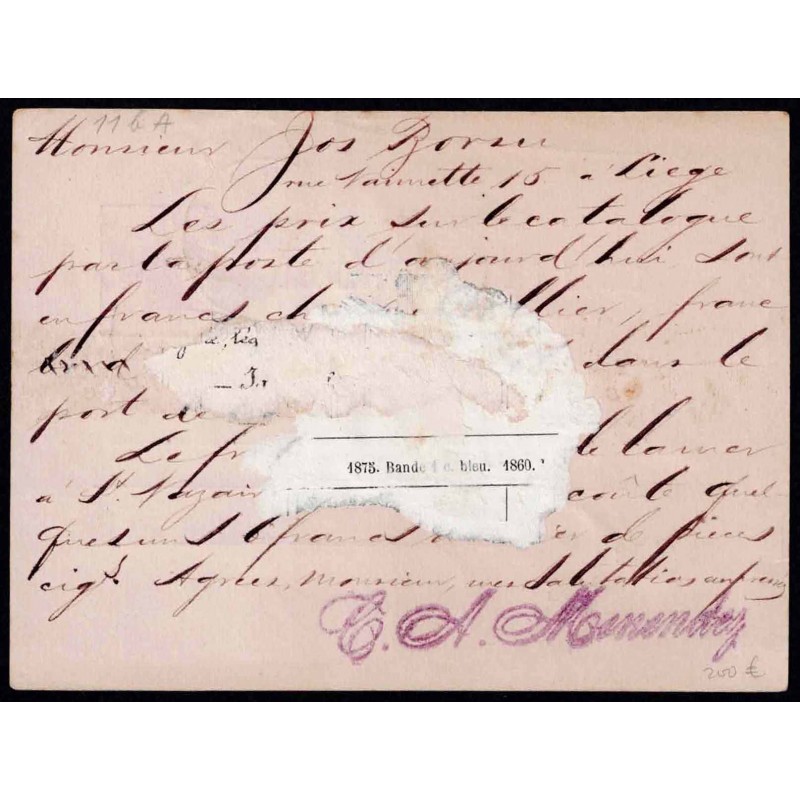 11bA
Monsieur Jos Borsu
rue Naimette 15 à Liege
Les prix sur le catalogue
par la poste d'aujourd'hui sont
en francs ch llier, franc
dans le
port de
Le fr de la mer
à St. Nazair coûte quel-
ques uns 6 francs de pièces
cigs. Agrées, Monsieur, mes salutations
1875. Bande 1 c. bleu. 1860.
C. A. Menendez
200 €